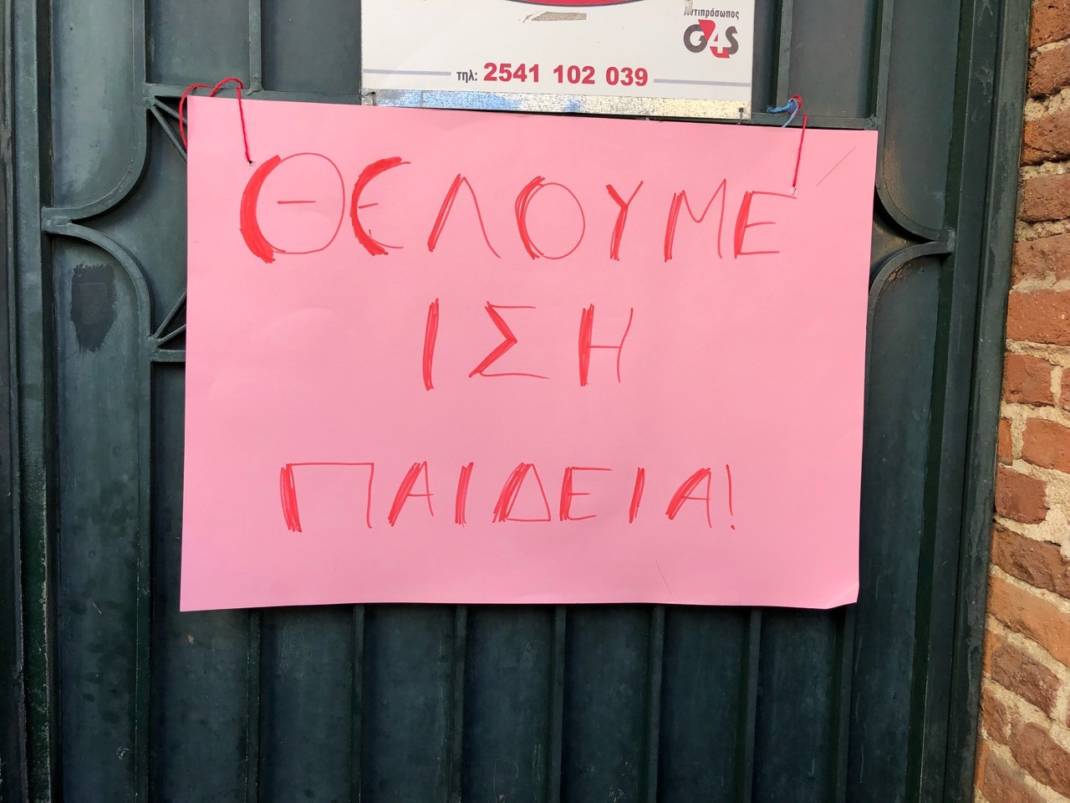 αντιπρόσωπος
G4S
τηλ: 2541 102 039
ΘΕΛΟΥΜΕ
ΙΣΗ
ΠΑΙΔΕΙΑ!